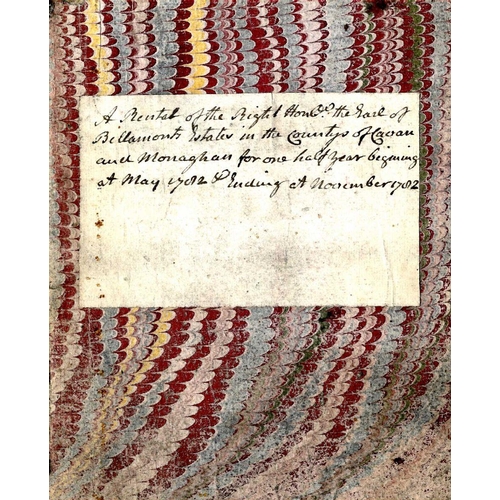 A Rental of the Right Honble. the Earl of
Billamont Estates in the Countys of Cavan
and Monaghan for one half year begining
at May 1782 & Ending at November 1782